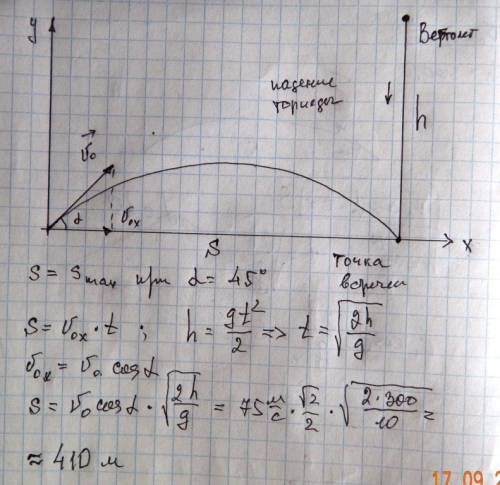 y
Вертолет
падение
торпеды
h
v₀
α
v₀ₓ
S
x
точка
встречи
S = Smax при α = 45°
S = v₀ₓ · t ; h = gt²/2 => t = √(2h/g)
v₀ₓ = v₀ cos α
S = v₀ cos α · √(2h/g) = 75 м/с · √2/2 · √(2·300/10) =
≈ 410 м
17.09.2